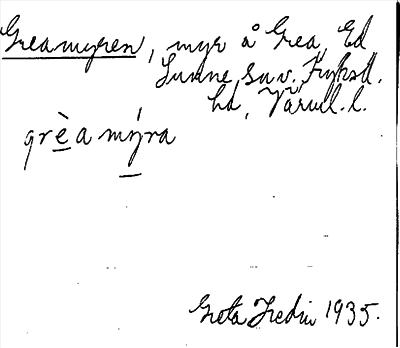 Greamyren, myr å Grea, Ed
Sunne, sn.
hd, Värml. l.
grèa mýra
Greta Hedin 1935.